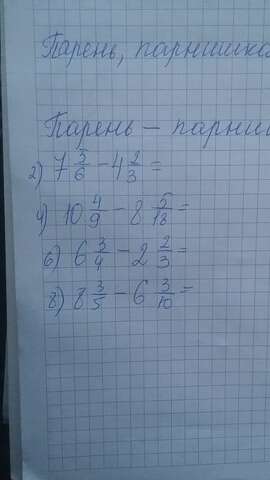 Парень, парнишка
Парень – парни
2) 7 5/6 – 4 2/3 =
4) 10 4/9 – 8 5/18 =
6) 6 3/4 – 2 2/3 =
8) 8 3/5 – 6 3/10 =